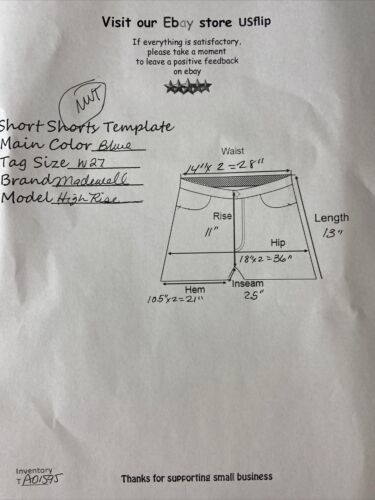 Visit our Ebay store USflip
If everything is satisfactory,
please take a moment
to leave a positive feedback
on ebay
NWT
Short Shorts Template
Main Color Blue
Tag Size W27
Brand Madewell
Model High Rise
Waist
14"x 2 = 28"
Rise
11"
Length
13"
Hip
18"x2=36"
Hem
10.5"x2=21"
Inseam
2.5"
Inventory
T A01595
Thanks for supporting small business